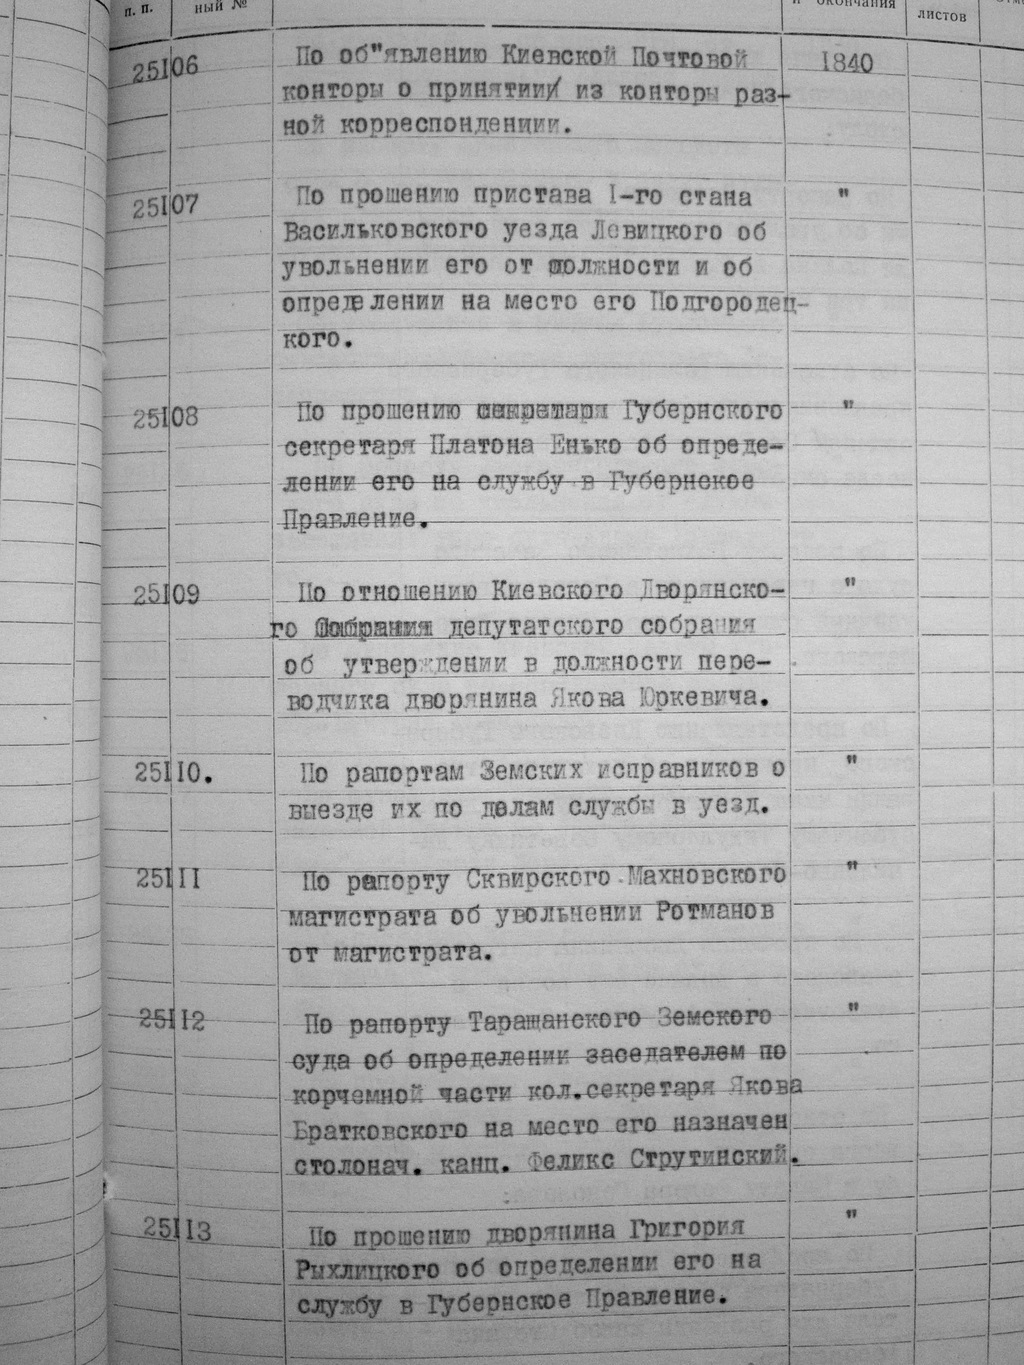 п. п.
ный №
и окончания
листов
25I06 По об"явлению Киевской Почтовой 1840
конторы о принятиии из конторы раз-
ной корреспонденции.
25I07 По прошению пристава I-го стана "
Васильковского уезда Левицкого об
увольнении его от должности и об
определении на место его Подгородец-
кого.
25I08 По прошению секретаря Губернского "
секретаря Платона Енько об опреде-
лении его на службу в Губернское
Правление.
25I09 По отношению Киевского Дворянско- "
го Собрания депутатского собрания
об утверждении в должности пере-
водчика дворянина Якова Юркевича.
25II0. По рапортам Земских исправников о "
выезде их по делам службы в уезд.
25III По рапорту Сквирского Махновского "
магистрата об увольнении Ротманов
от магистрата.
25II2 По рапорту Таращанского Земского "
суда об определении заседателем по
корчемной части кол.секретаря Якова
Братковского на место его назначен
столонач. канц. Феликс Струтинский.
25II3 По прошению дворянина Григория "
Рыхлицкого об определении его на
службу в Губернское Правление.